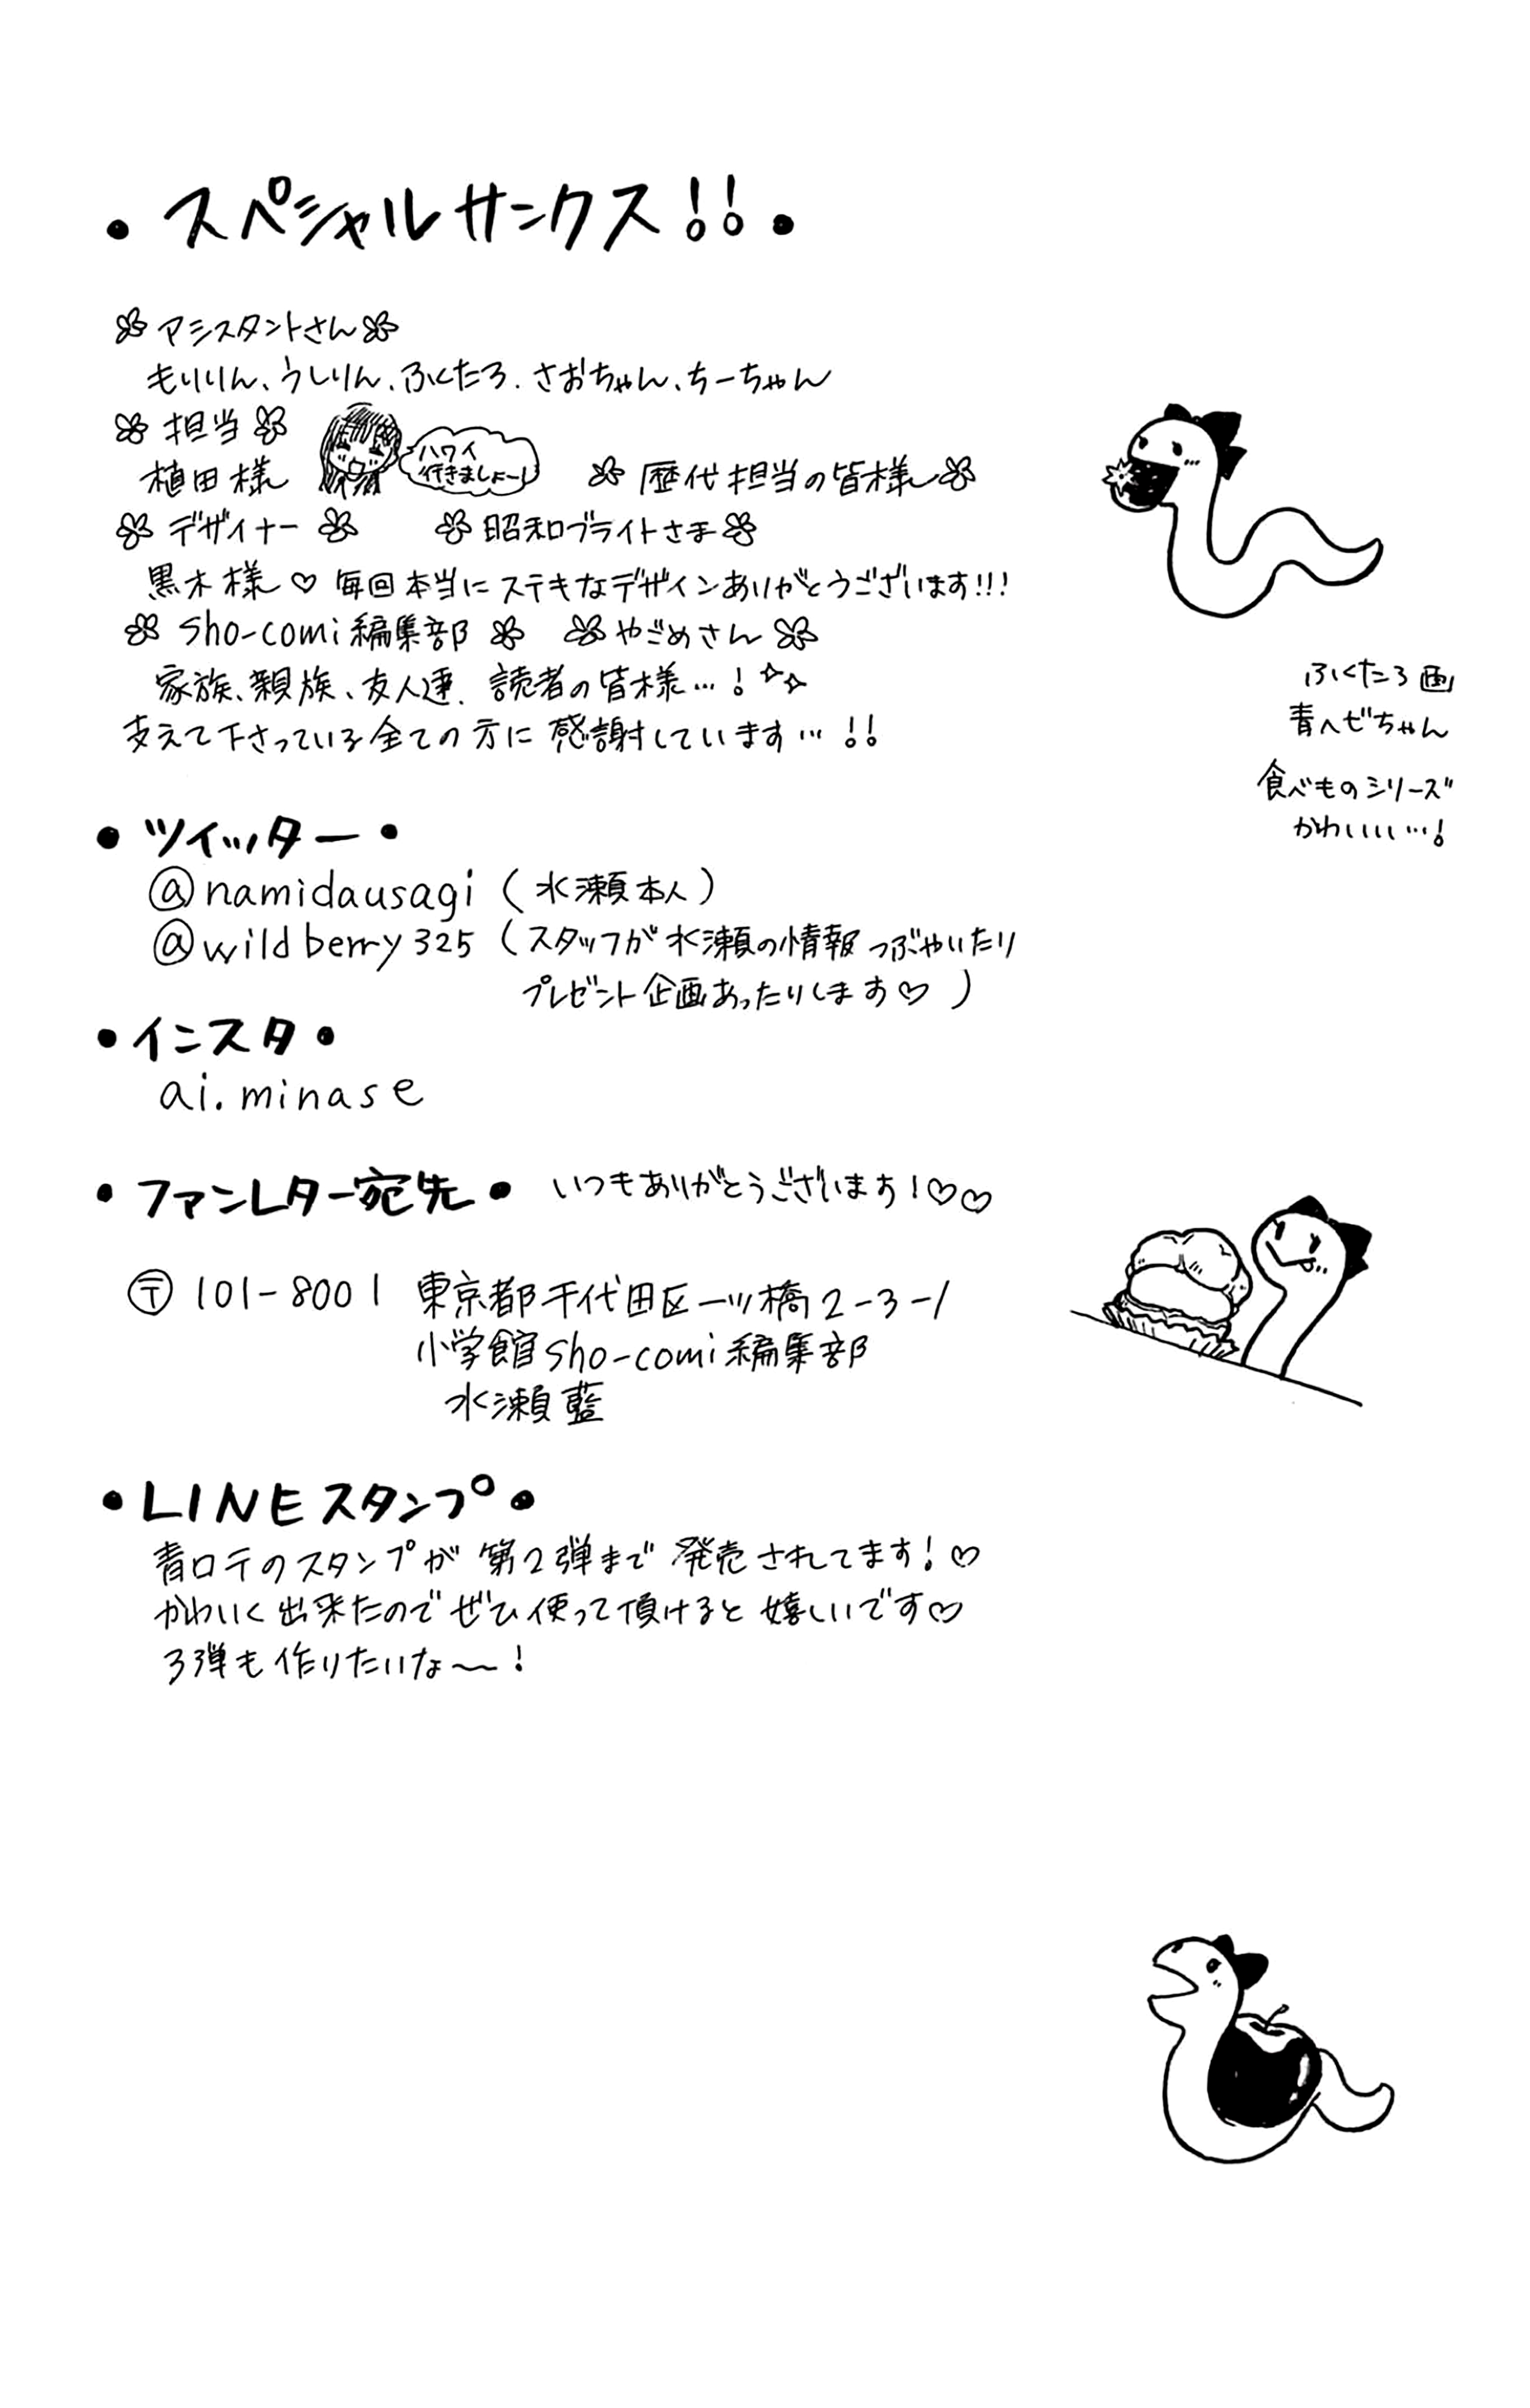 ・スペシャルサンクス!!・
アシスタントさん
もりりん、うしりん、ふくたろ、さおちゃん、ちーちゃん
担当
植田様
ハワイ
行きましょー!
歴代担当の皆様
デザイナー
昭和ブライトさま
黒木様♡毎回本当にステキなデザインありがとうございます!!!
Sho-comi編集部 やごめさん
家族、親族、友人達、読者の皆様…!
支えて下さっている全ての方に感謝しています…!!
ふくたろ画
青ヘビちゃん
食べものシリーズ
かわいいい…!
・ツイッター・
@namidausagi(水瀬本人)
@wildberry325(スタッフが水瀬の情報つぶやいたり
プレゼント企画あったりします♡)
・インスタ・
ai.minase
・ファンレター宛先・ いつもありがとうございます!♡♡
〒101-8001 東京都千代田区一ツ橋2-3-1
小学館Sho-comi編集部
水瀬藍
・LINEスタンプ・
青ロテのスタンプが第2弾まで発売されてます!♡
かわいく出来たのでぜひ使って頂けると嬉しいです♡
3弾も作りたいな〜!